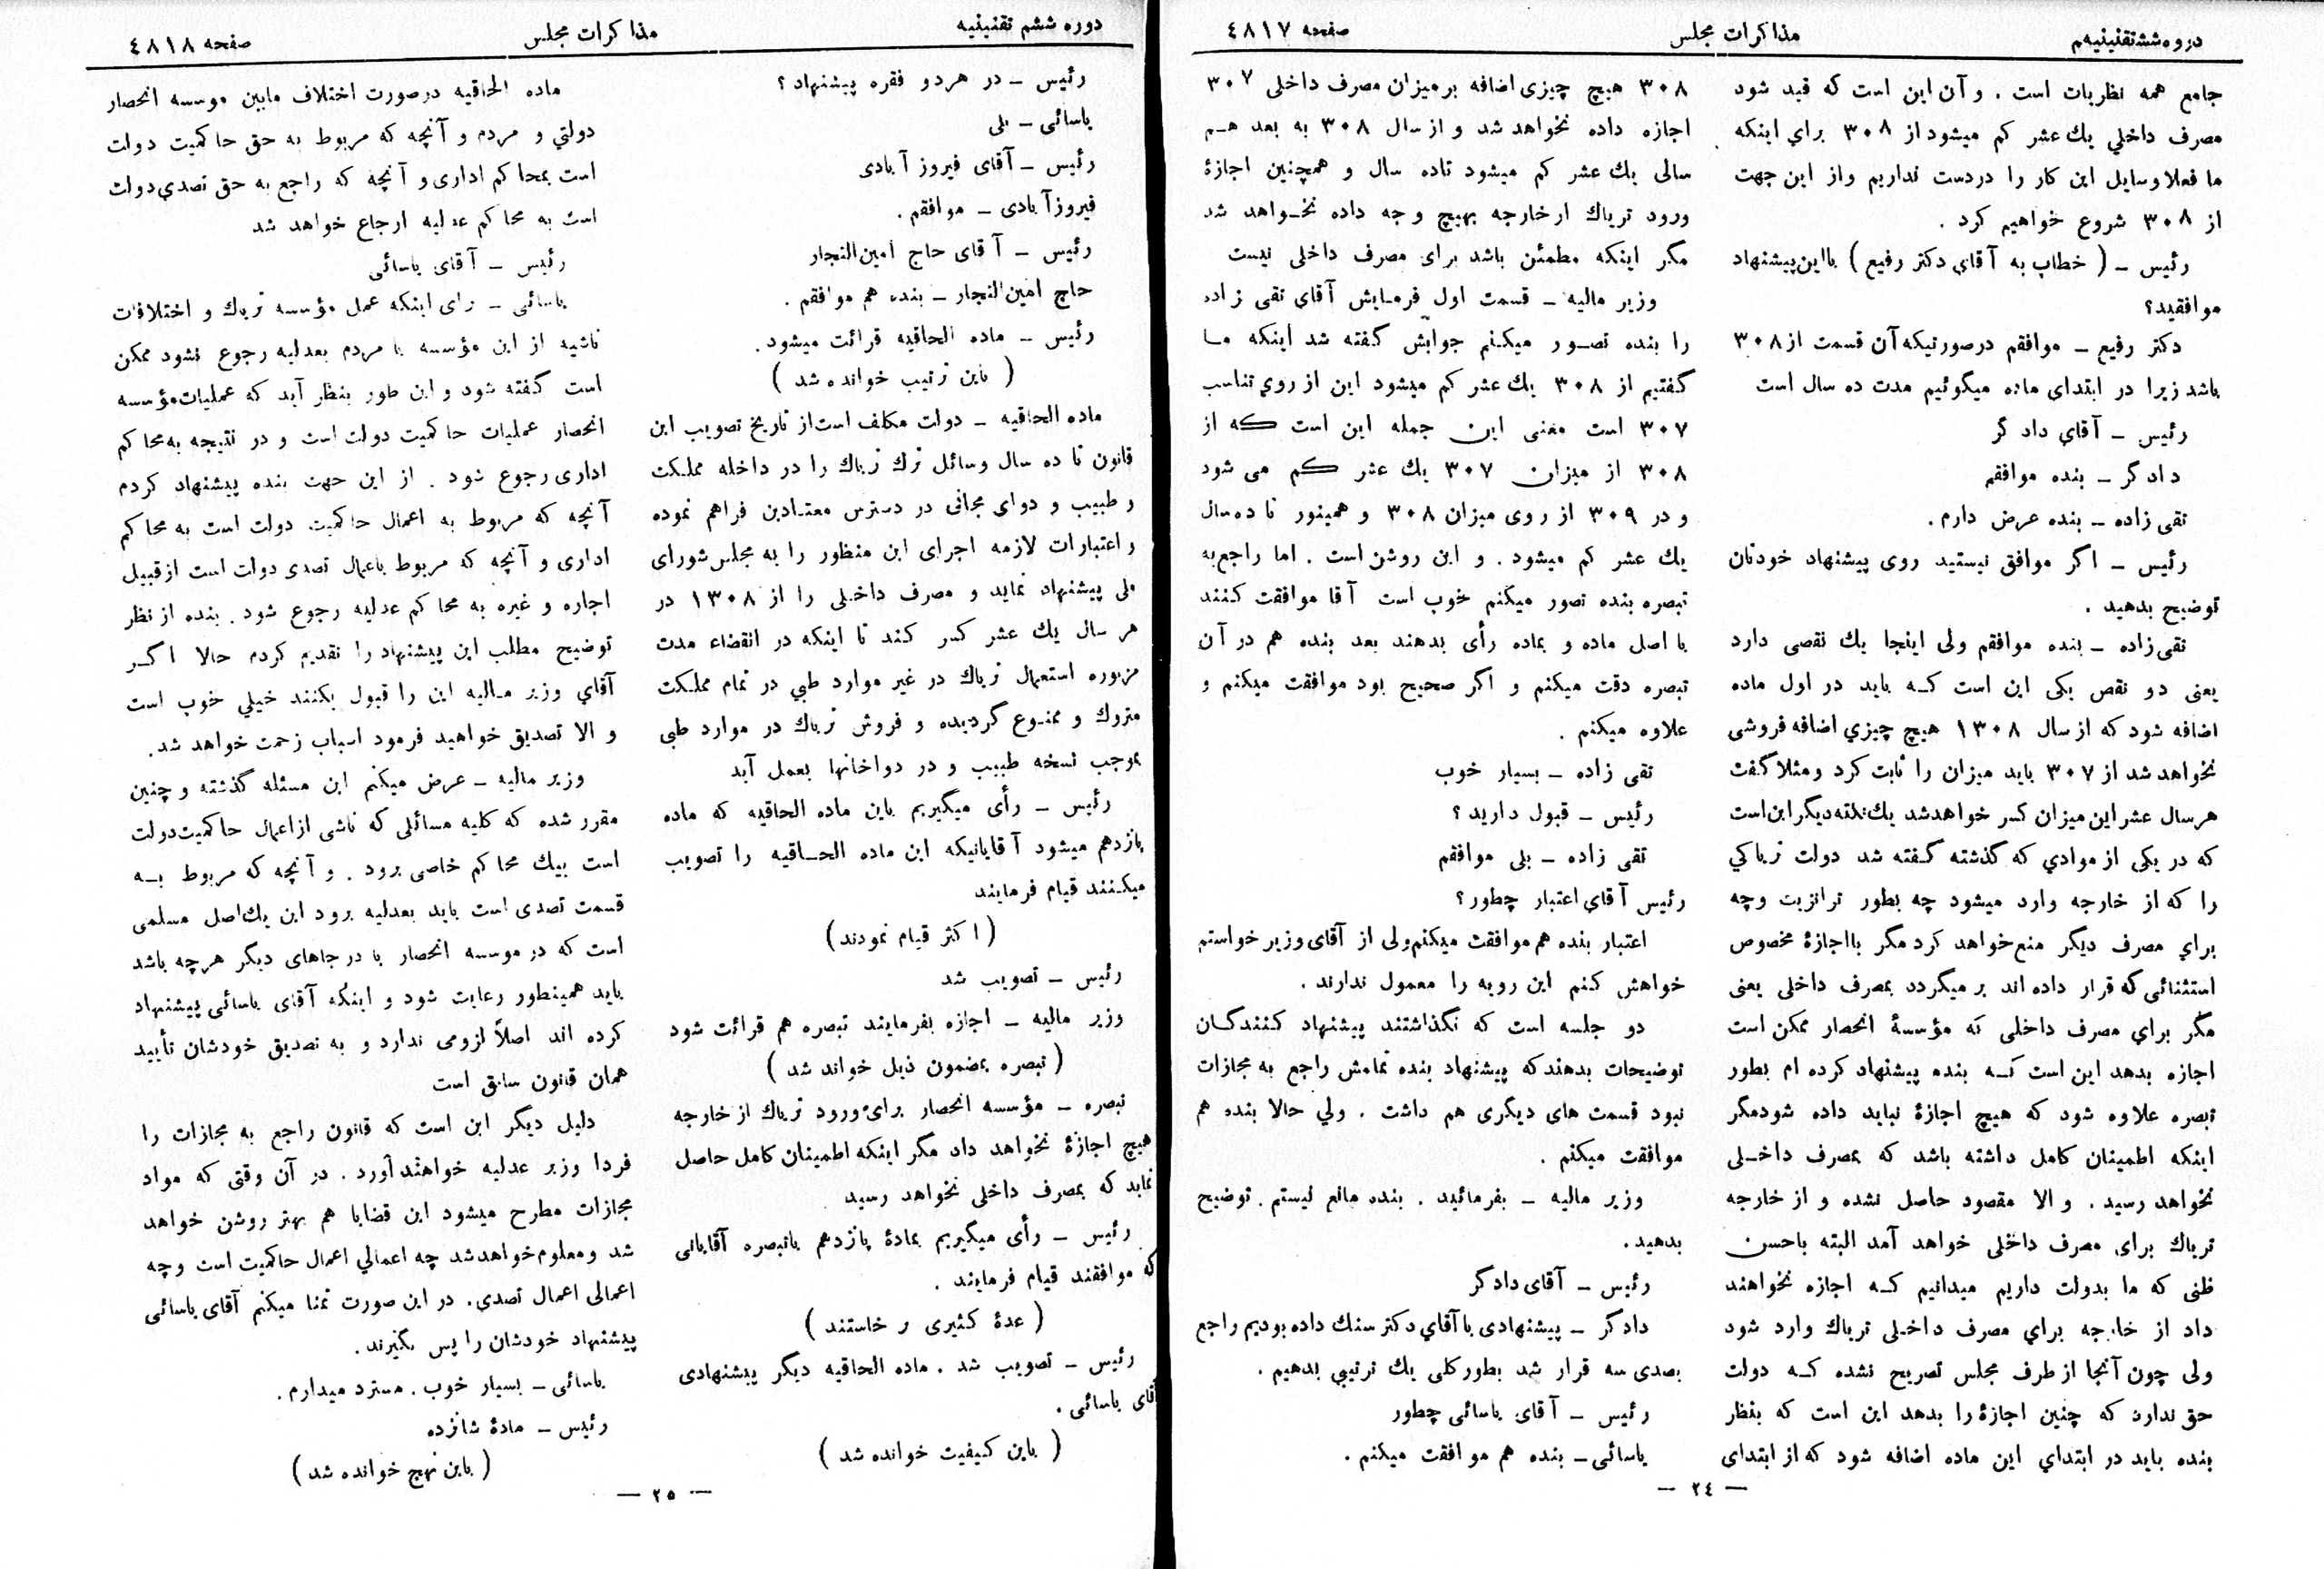 دروه ششتقنینیهم
مذاکرات مجلس
صفحه ٤٨١٧
جامع همه نظریات است . و آن این است که قید شود
مصرف داخلي یك عشر کم میشود از ۳۰۸ براي اینکه
ما فعلا وسایل این کار را دردست نداریم واز این جهت
از ۳۰۸ شروع خواهیم کرد .
رئیس ـ ( خطاب به آقاي دکتر رفیع ) بااین پیشنهاد
موافقید؟
دکتر رفیع ـ موافقم درصورتیکه آن قسمت از ۳۰۸
باشد زیرا در ابتدای ماده میگوئیم مدت ده سال است
رئیس ـ آقاي داد گر
داد گر ـ بنده موافقم
تقی زاده ـ بنده عرض دارم .
رئیس ـ اگر موافق نیستید روی پیشنهاد خودتان
توضیح بدهید .
تقی زاده ـ بنده موافقم ولی اینجا یك نقصی دارد
یعنی دو نقص یکی این است کـه باید در اول ماده
اضافه شود که از سال ۱۳۰۸ هیچ چیزي اضافه فروشی
نخواهد شد از ۳۰۷ باید میزان را ثابت کرد و مثلا گفت
هرسال عشر این میزان کسر خواهدشد یك نکته دیگر این است
که در یکی از موادي که گذشته گـفته شد دولت تریاکي
را که از خارجه وارد میشود چه بطور ترانزیت وچه
براي مصرف دیگر منع خواهد کرد مگر بااجازهٔ مخصوص
استثنائی که قرار داده اند بر میگردد بمصرف داخلی یعنی
مگر براي مصرف داخلی که مؤسسهٔ انحصار ممکن است
اجازه بدهد این است کـه بنده پیشنهاد کرده ام بطور
تبصره علاوه شود که هیچ اجازهٔ نباید داده شودمگر
اینکه اطمینان کامل داشته باشد که بمصرف داخـلی
نخواهد رسید . و الا مقصود حاصل نشده و از خارجه
تریاك برای مصرف داخلی خواهد آمد البته باحسن
ظنی که ما بدولت داریم میدانیم کـه اجازه نخواهند
داد از خارجه براي مصرف داخـلی تریاك وارد شود
ولی چون آنجا از طرف مجلس تصریح نشده کـه دولت
حق ندارد که چنین اجازهٔ را بدهد این است که بنظر
بنده باید در ابتداي این ماده اضافه شود که از ابتدای
۳۰۸ هیچ چیزی اضافه بر میزان مصرف داخلی ۳۰۷
اجازه داده نخواهد شد و از سال ۳۰۸ به بعد هـم
سالی یك عشر کم میشود تاده سال و همچنین اجازهٔ
ورود تریاك ازخارجه بهیچ وجه داده نخـواهد شد
مگر اینکه مطمئن باشد برای مصرف داخلی نیست
وزیر مالیه ـ قسمت اول فرمـایش آقاي تقی زاده
را بنده تصـور میکـنم جوابش گـفته شد اینکه مـا
گـفتیم از ۳۰۸ یك عشر کم میشود این از روي تناسب
۳۰۷ است معنی این جمله این است که از
۳۰۸ از میزان ۳۰۷ یك عشر کم می شود
و در ۳۰۹ از روی میزان ۳۰۸ و همینور تا ده سال
یك عشر کم میشود . و این روشن است . اما راجع به
تبصره بنده تصور میکنم خوب است آقا موافقت کـنند
با اصل ماده و بماده رأی بدهند بعد بنده هم در آن
تبصره دقت میکنم و اگر صحیح بود موافقت میکنم و
علاوه میکنم .
تقی زاده ـ بسیار خوب
رئیس ـ قبول دارید ؟
تقی زاده ـ بلی موافقم
رئیس آقاي اعتبار چطور؟
اعتبار بنده هم موافقت میکنم ولی از آقای وزیر خواستم
خواهش کنم این رویه را معمول ندارند .
دو جلسه است که نگذاشتند پیشنهاد کنندگـان
توضیحات بدهند که پیشنهاد بنده تمامش راجع به مجازات
نبود قسمت های دیگری هم داشت . ولي حالا بنده هم
موافقت میکنم .
وزیر مالیه ـ بفرمائید . بنده مانع نیستم . توضیح
بدهید .
رئیس ـ آقای دادگر
دادگر ـ پیشنهادی با آقاي دکتر سنك داده بودیم راجع
بصدی سه قرار شد بطورکلی یك ترتیبي بدهیم .
رئیس ـ آقای یاسائی چطور
یاسائی ـ بنده هم موافقت میکنم .
— ٢٤ —
دوره ششم تقنینیه
مذاکرات مجلس
صفحه ٤٨١٨
رئیس ـ در هردو فقره پیشنهاد ؟
یاسائی ـ بلی
رئیس ـ آقای فیروز آبادی
فیروزآبادی ـ موافقم .
رئیس ـ آقای حاج امین‌التجار
حاج امین‌التجار ـ بنده هم موافقم .
رئیس ـ ماده الحاقیه قرائت میشود .
( باین ترتیب خوانده شد )
ماده الحاقیه ـ دولت مکلف است از تاریخ تصویب این
قانون تا ده سال وسائل ترك تریاك را در داخله مملکت
و طبیب و دوای مجانی در دسترس معتـادین فراهم نموده
و اعتبارات لازمه اجرای این منظور را به مجلس شورای
ملی پیشنهاد نماید و مصرف داخـلی را از ۱۳۰۸ در
هر سال یك عشر کسر کند تا اینکه در انقضاء مدت
مزبوره استعمال تریاك در غیر موارد طبي در تمام مملکت
متروك و ممنـوع گردیده و فروش تریاك در موارد طبی
بموجب نسخه طبیب و در دواخانها بعمل آید
رئیس ـ رأی میگیریم باین ماده الحاقیه که ماده
پانزدهم میشود آقایانیکه این ماده الحـاقیه را تصویب
میکـنند قیام فرمایند
( اکثر قیام نمودند)
رئیس ـ تصویب شد
وزیر مالیه ـ اجازه بفرمایند تبصره هم قرائت شود
( تبصره بمضمون ذیل خواند شد )
تبصره ـ مؤسسه انحصار برای ورود تریاك از خارجه
هیچ اجازهٔ نخواهد داد مگر اینکه اطمینان کامل حاصل
نماید که بمصرف داخلی نخواهد رسید
رئیس ـ رأی میگیریم بمادهٔ پانزدهم باتبصره آقایانی
که موافقند قیام فرمایند .
( عدهٔ کثیری بر خاستند )
رئیس ـ تصویب شد . ماده الحاقیه دیگر پیشنهادی
آقای یاسائی .
( باین کیفیت خوانده شد )
ماده الحاقیه درصورت اختلاف مابین موسسه انحصار
دولتي و مردم و آنچه که مربوط به حق حاکمیت دولت
است بمحاکم اداری و آنچه که راجع به حق تصدي دولت
است به محاکم عدلیه ارجاع خواهد شد
رئیس ـ آقای یاسائی
یاسائی ـ برای اینکه عمل مؤسسه تریاك و اختلافات
ناشیه از این مؤسسه با مردم بعدلیه رجوع نشود ممکن
است گـفته شود و این طور بنظر آید که عملیات مؤسسه
انحصار عملیات حاکمیت دولت است و در نتیجه به محاکم
اداری رجوع شود . از این جهت بنده پیشنهاد کردم
آنچه که مربوط به اعمال حاکمیت دولت است به محاکم
اداری و آنچه که مربوط باعمال تصدی دولت است ازقبیل
اجاره و غیره به محاکم عدلیه رجوع شود . بنده از نظر
توضیح مطلب این پیشنهاد را تقدیم کردم حالا اگـر
آقاي وزیر مـالیه این را قبول بکنند خیلي خوب است
و الا تصدیق خواهید فرمود اسباب زحمت خواهد شد .
وزیر مالیه ـ عرض میکنم این مسئله گذشته و چنین
مقرر شده که کلیه مسائلی که ناشی از اعمال حاکمیت دولت
است بیك محاکم خاصی برود . و آنچه که مربوط بـه
قسمت تصدی است باید بعدلیه برود این یك اصل مسلمی
است که در موسسه انحصار یا در جاهای دیگر هرچه باشد
باید همینطور رعایت شود و اینکه آقای یاسائی پیشنهاد
کرده اند اصلاً لزومی ندارد و به تصدیق خودشان تأیید
همان قانون سابق است
دلیل دیگر این است که قانون راجع به مجازات را
فردا وزیر عدلیه خواهند آورد . در آن وقتی که مواد
مجازات مطرح میشود این قضایا هم بهتر روشن خواهد
شد و معلوم خواهد شد چه اعمالي اعمال حاکمیت است و چه
اعمالی اعمال تصدی . در این صورت تمنا میکنم آقای یاسائی
پیشنهاد خودشان را پس بگیرند .
یاسائی ـ بسیار خوب . مسترد میدارم .
رئیس ـ مادهٔ شانزده
( باین نهج خوانده شد )
— ٢٥ —